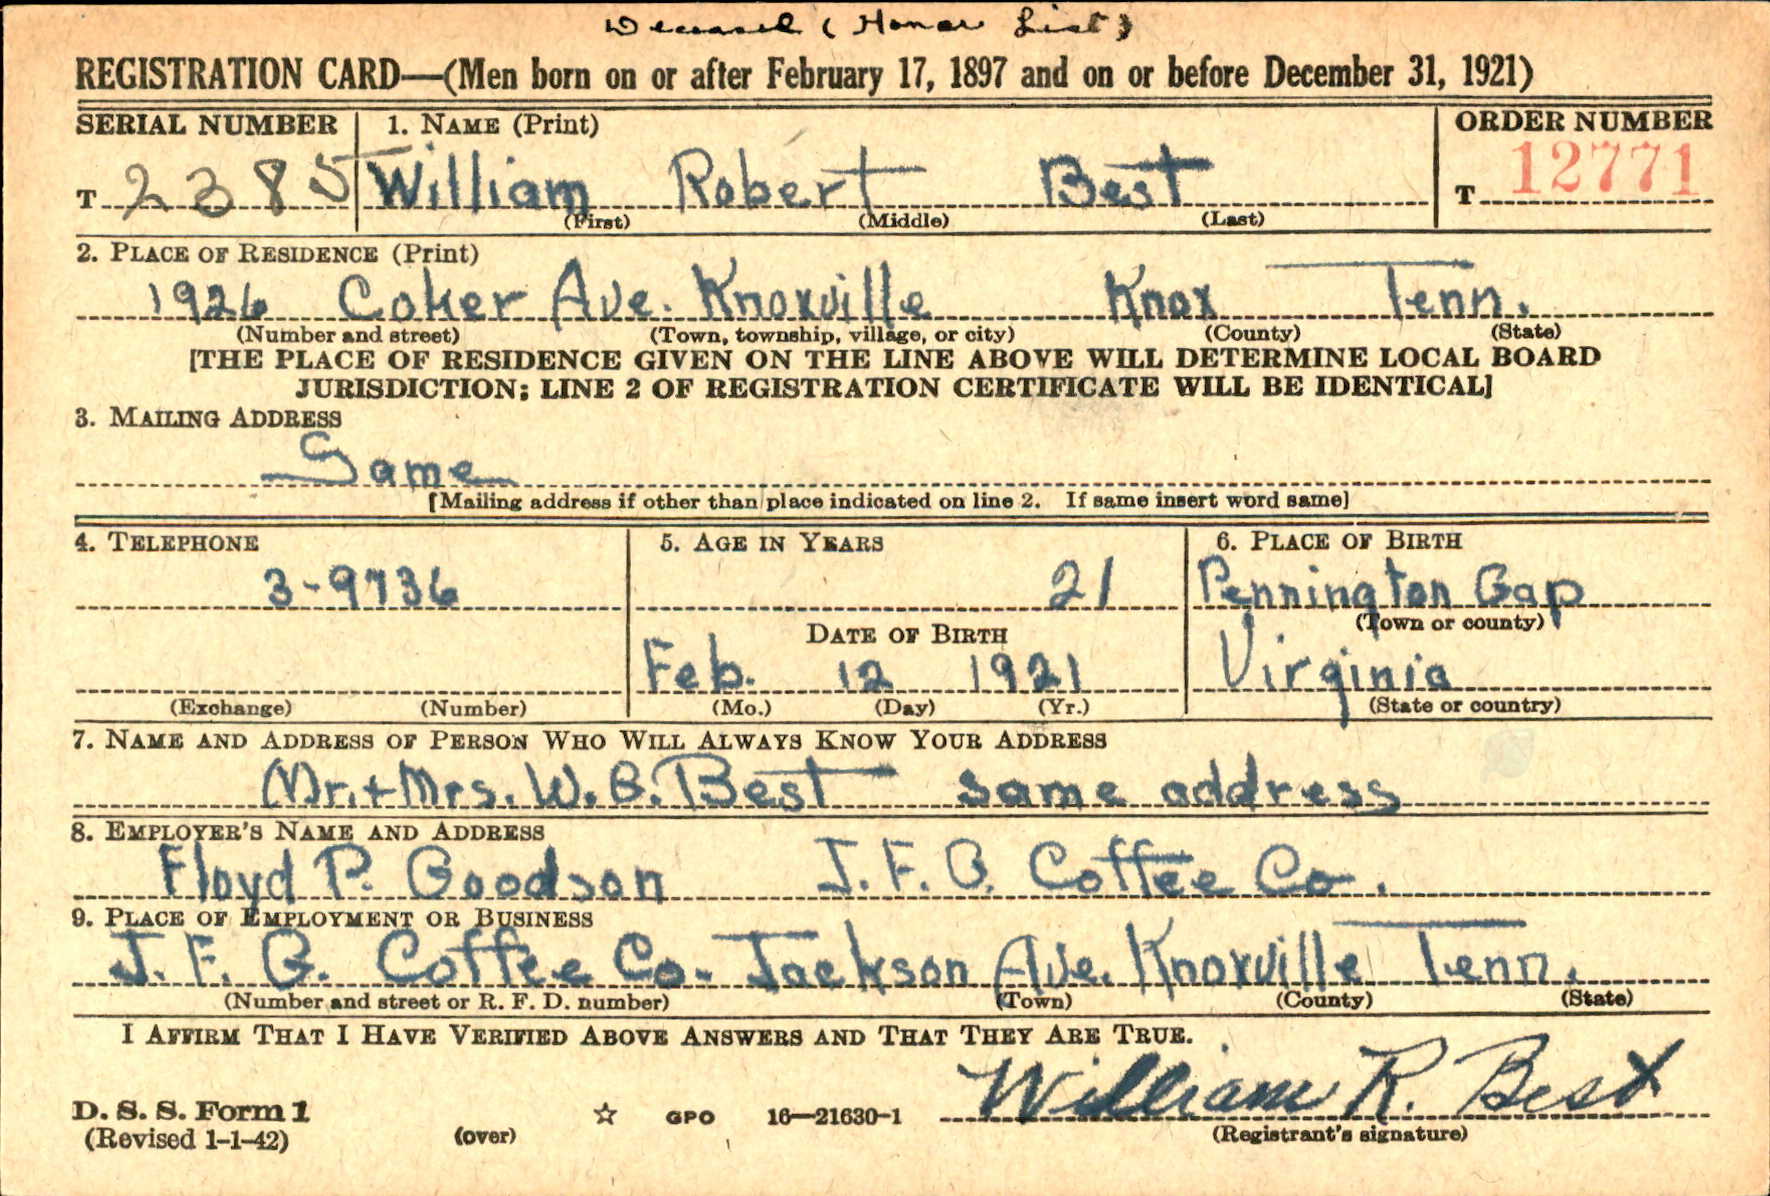 Deceased (Honor List)
REGISTRATION CARD—(Men born on or after February 17, 1897 and on or before December 31, 1921)
SERIAL NUMBER 1. NAME (Print) ORDER NUMBER
T 2385 William Robert Best T 12771
(First) (Middle) (Last)
2. PLACE OF RESIDENCE (Print)
1926 Coker Ave. Knoxville Knox Tenn.
(Number and street) (Town, township, village, or city) (County) (State)
[THE PLACE OF RESIDENCE GIVEN ON THE LINE ABOVE WILL DETERMINE LOCAL BOARD
JURISDICTION; LINE 2 OF REGISTRATION CERTIFICATE WILL BE IDENTICAL]
3. MAILING ADDRESS
Same
[Mailing address if other than place indicated on line 2. If same insert word same]
4. TELEPHONE 5. AGE IN YEARS 6. PLACE OF BIRTH
3-9736 21 Pennington Gap
DATE OF BIRTH (Town or county)
Feb. 12 1921 Virginia
(Exchange) (Number) (Mo.) (Day) (Yr.) (State or country)
7. NAME AND ADDRESS OF PERSON WHO WILL ALWAYS KNOW YOUR ADDRESS
Mr. + Mrs. W. G. Best same address
8. EMPLOYER'S NAME AND ADDRESS
Floyd P. Goodson J. F. G. Coffee Co.
9. PLACE OF EMPLOYMENT OR BUSINESS
J. F. G. Coffee Co. Jackson Ave. Knoxville Tenn.
(Number and street or R. F. D. number) (Town) (County) (State)
I AFFIRM THAT I HAVE VERIFIED ABOVE ANSWERS AND THAT THEY ARE TRUE.
William R. Best
D. S. S. Form 1 ☆ GPO 16—21630-1
(Revised 1-1-42) (over) (Registrant's signature)